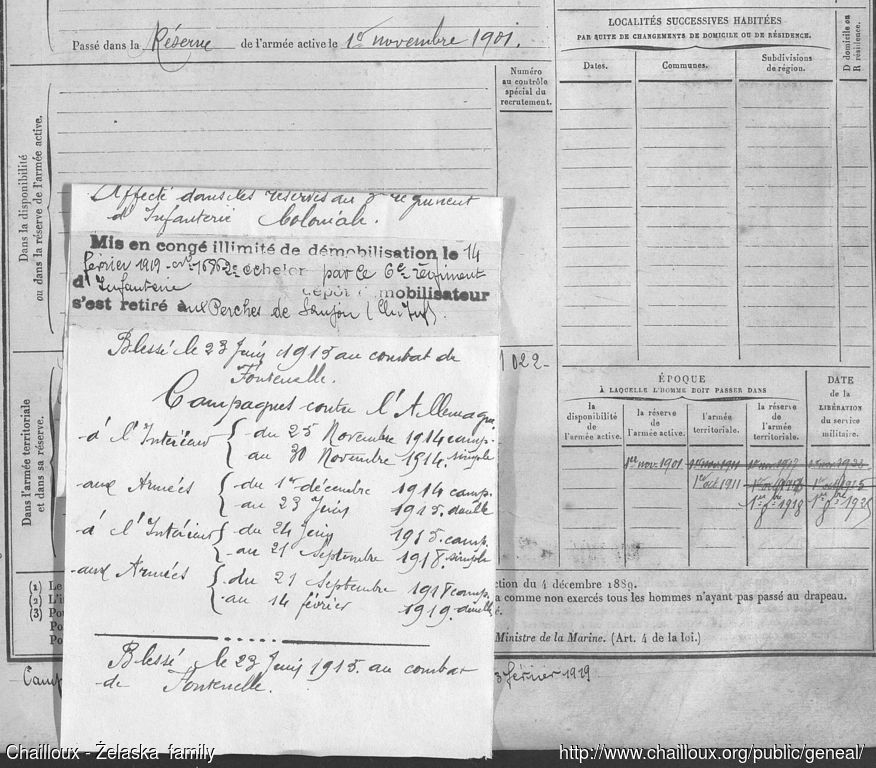 Passé dans la Réserve de l'armée active le 1er novembre 1901.
Numéro
au contrôle
spécial du
recrutement.
LOCALITÉS SUCCESSIVES HABITÉES
PAR SUITE DE CHANGEMENTS DE DOMICILE OU DE RÉSIDENCE.
Dates.
Communes.
Subdivisions
de région.
D domicile ou
R résidence.
Dans la disponibilité
ou dans la réserve de l'armée active.
Affecté dans les réserves du régiment
d'Infanterie Coloniale.
Mis en congé illimité de démobilisation le 14
février 1919 2e échelon par le 6e régiment
d'Infanterie dépôt démobilisateur
s'est retiré aux Perches de Saujon
Blessé le 23 Juin 1915 au combat de
Fontenelle.
Campagnes contre l'Allemagne.
à l'Intérieur { du 25 Novembre 1914 camp.
au 30 Novembre 1914. simple
aux Armées { du 1er décembre 1914 camp.
au 23 Juin 1915. double
à l'Intérieur { du 24 juin 1915. camp.
au 21 Septembre 1918. simple
aux Armées { du 21 Septembre 1918 camp.
au 14 février 1919. double
Blessé le 23 Juin 1915. au combat
de Fontenelle.
022-
Dans l'armée territoriale
et dans sa réserve.
ÉPOQUE
À LAQUELLE L'HOMME DOIT PASSER DANS
la
disponibilité
de
l'armée active.
la réserve
de
l'armée active.
l'armée
territoriale.
la réserve
de
l'armée
territoriale.
DATE
de la
LIBÉRATION
du service
militaire.
1er nov. 1901
1er oct 1911
1er 8bre 1918
1er 8bre 1925
(1) Le
(2) L'i
(3) Pou
Po
Po
ction du 4 décembre 1889.
a comme non exercés tous les hommes n'ayant pas passé au drapeau.
é.
Ministre de la Marine. (Art. 4 de la loi.)
Camp
3 février 1919
Chailloux - Żelaska family
http://www.chailloux.org/public/geneal/